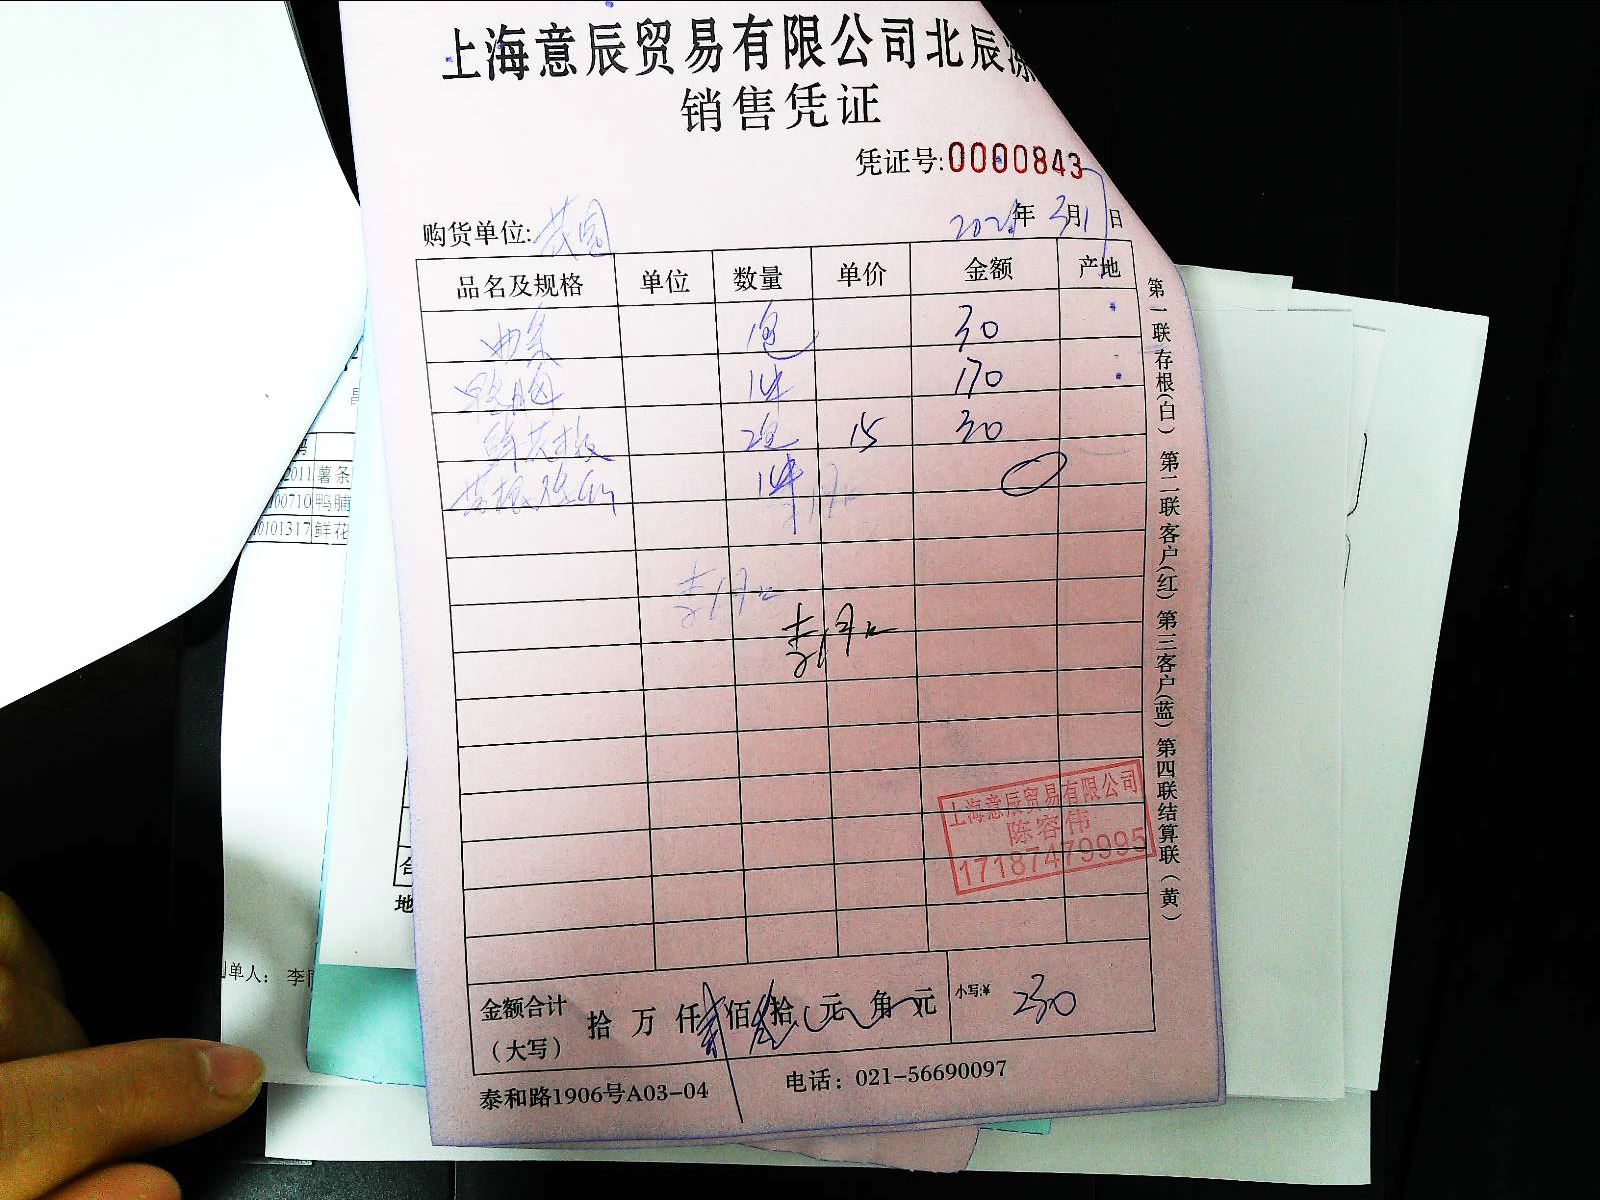 上海意辰贸易有限公司北辰冻
销售凭证
凭证号:0000843
购货单位:茂园 年3月1日
品名及规格 单位 数量 单价 金额 产地
1包 30
鸭脯 1件 170
鲜花椒 2包 15 30
1件
李
李
上海意辰贸易有限公司
陈容伟
17187479995
金额合计(大写) 拾万仟贰佰叁拾元角元 小写:¥ 230
泰和路1906号A03-04 电话：021-56690097
第一联存根(白) 第二联客户(红) 第三客户(蓝) 第四联结算联(黄)
2011 薯条
00710 鸭脯
0101317 鲜花
合
地
制单人： 李